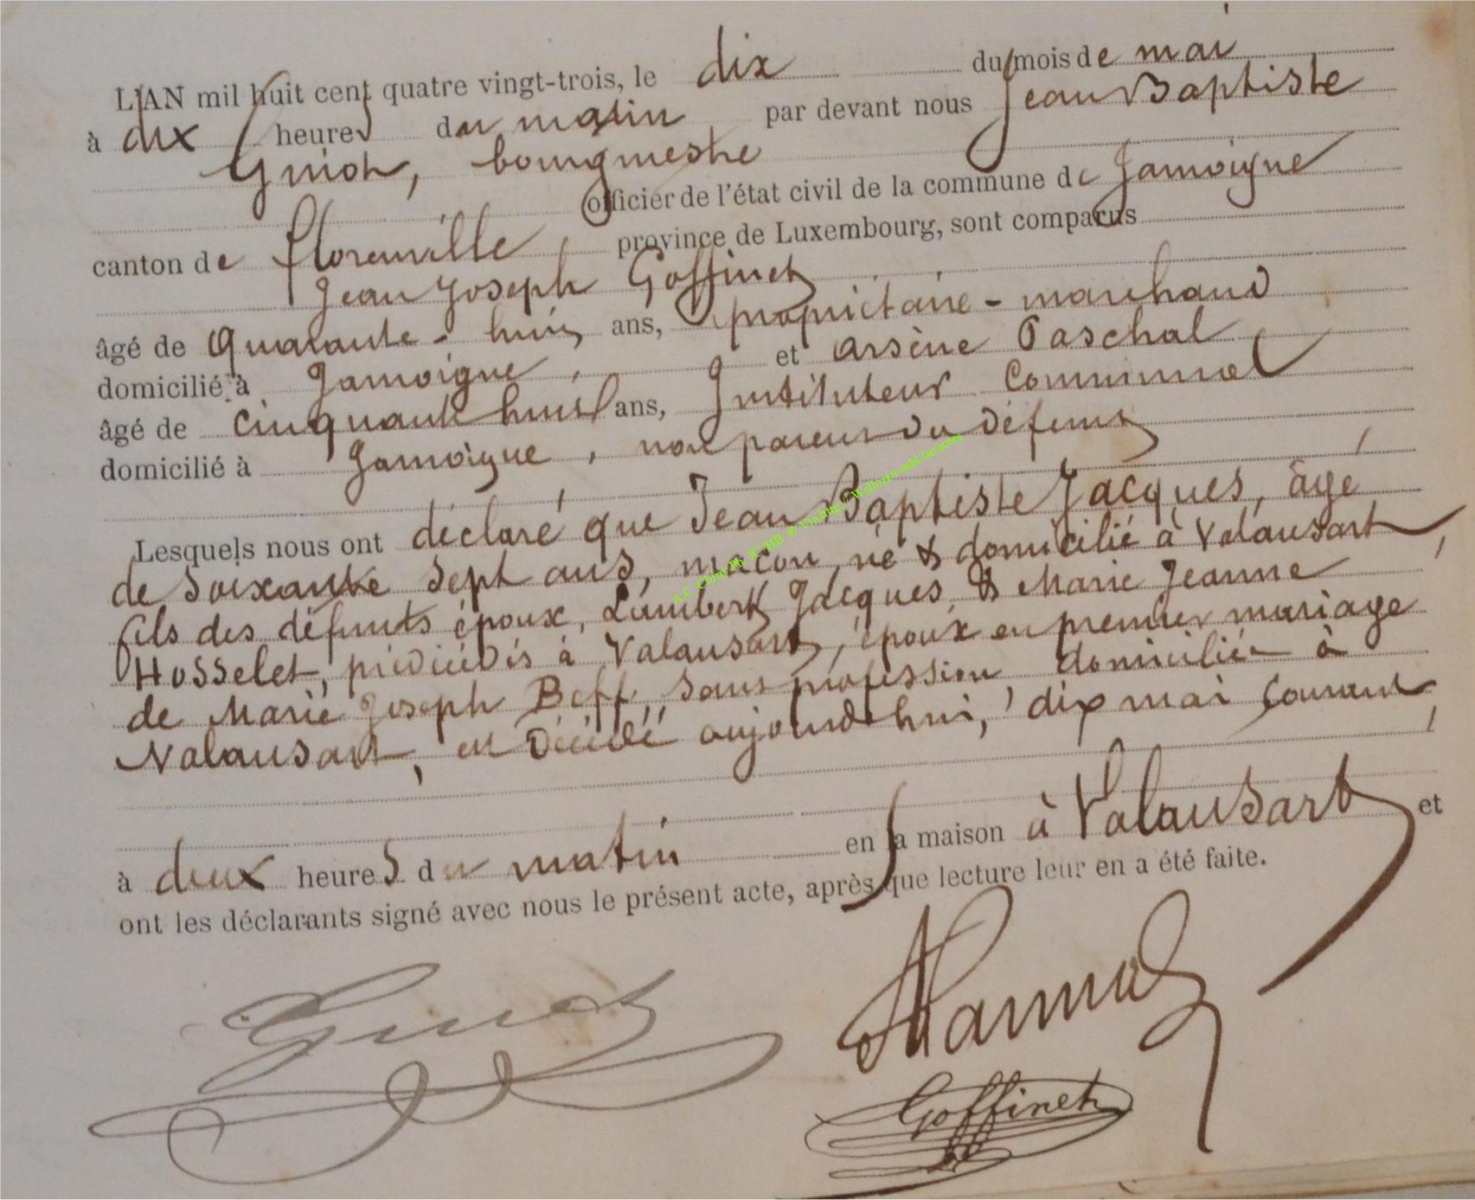 L'AN mil huit cent quatre vingt-trois, le dix du mois de mai
à dix heures du matin par devant nous Jean Baptiste
Guiot, bourgmestre
officier de l'état civil de la commune de Jamoigne
canton de Florenville, province de Luxembourg, sont comparus
Jean Joseph Goffinet
âgé de quarante-huit ans, propriétaire-marchand
domicilié à Jamoigne, et Arsène Paschal
âgé de cinquante huit ans, Instituteur Communal
domicilié à Jamoigne, non parents du défunt
Lesquels nous ont déclaré que Jean Baptiste Jacques, âgé
de soixante sept ans, maçon, né & domicilié à Valansart,
fils des défunts époux, Lambert Jacques & Marie Jeanne
Hosselet, prédécédés à Valansart, époux en premier mariage
de Marie Joseph Boff, sans profession domiciliée à
Valansart, est décédé aujourd'hui, dix mai courant,
à deux heures du matin en sa maison à Valansart et
ont les déclarants signé avec nous le présent acte, après que lecture leur en a été faite.
Guiot
Goffinet